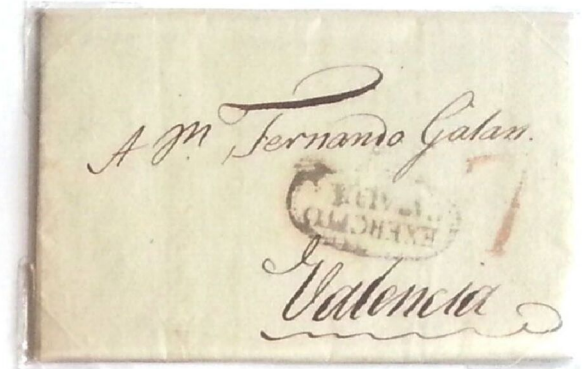 A Mr. Fernando Galan.
7
EXERCITO
Valencia